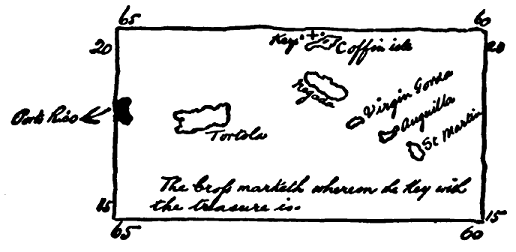 65 60
20 Key. Coffin isle 20
Negada
Virgin Gorda
Porto Rico
Anguilla
Tortola
St Martin
The Cross marketh wherein de Key with
15 the treasure is. 15
65 60